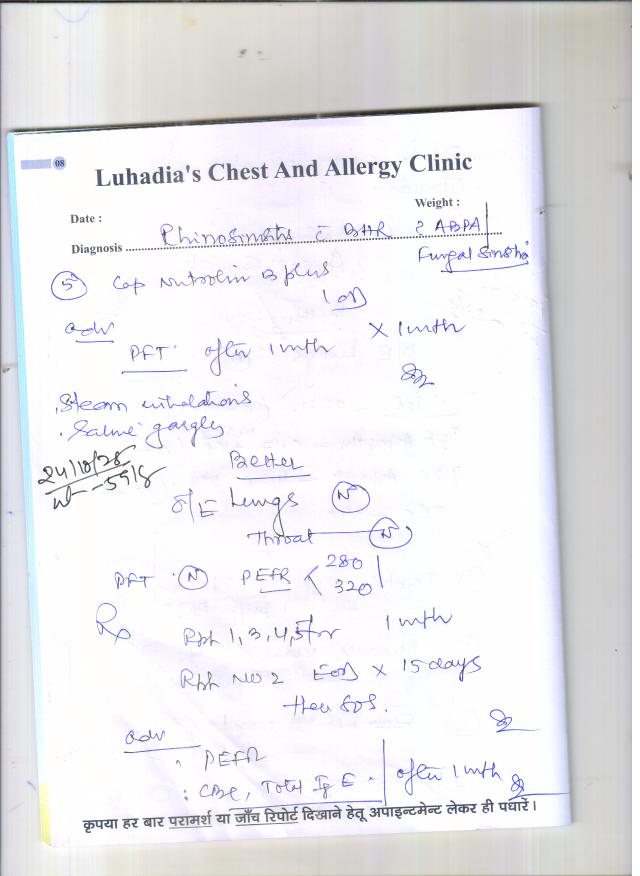 08
Luhadia's Chest And Allergy Clinic
Date : Weight :
Diagnosis Rhinosinusitis c̄ BHR ? ABPA
Fungal Sinusitis
5 Cap Nutrolin B plus
1 OD
adv x 1 mth
PFT after 1 mth
. Steam inhalations
. Saline gargles
Better
24/10/25
wt - 59/8
O/E Lungs N
Throat N
PFT N PEFR < 280
320
Rx Rpt 1, 3, 4, 5 for 1 mth
Rpt No 2 EOD x 15 days
then SOS.
adv
. PEFR
: CBC, Total Ig E . after 1 mth
कृपया हर बार परामर्श या जाँच रिपोर्ट दिखाने हेतू अपाइन्टमेन्ट लेकर ही पधारें।